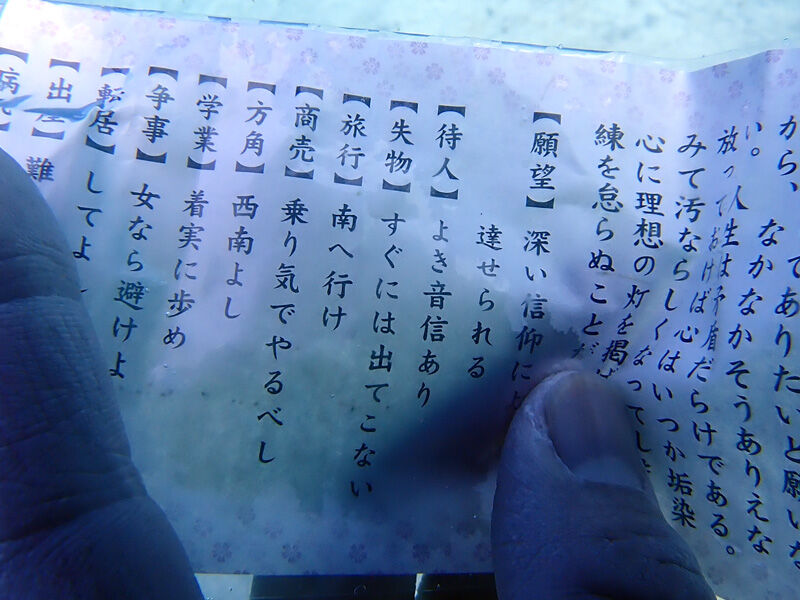 から、
でありたいと願いな
なかなかそうありえな
い。
人生は矛盾だらけである。
放っておけば心はいつか垢染
みて汚ならしくなってし
心に理想の灯を掲げ
練を怠らぬことだ
【願望】 深い信仰に
達せられる
【待人】 よき音信あり
【失物】 すぐには出てこない
【旅行】 南へ行け
【商売】 乗り気でやるべし
【方角】 西南よし
【学業】 着実に歩め
【争事】 女なら避けよ
【転居】 してよ
【出産】 難
【病